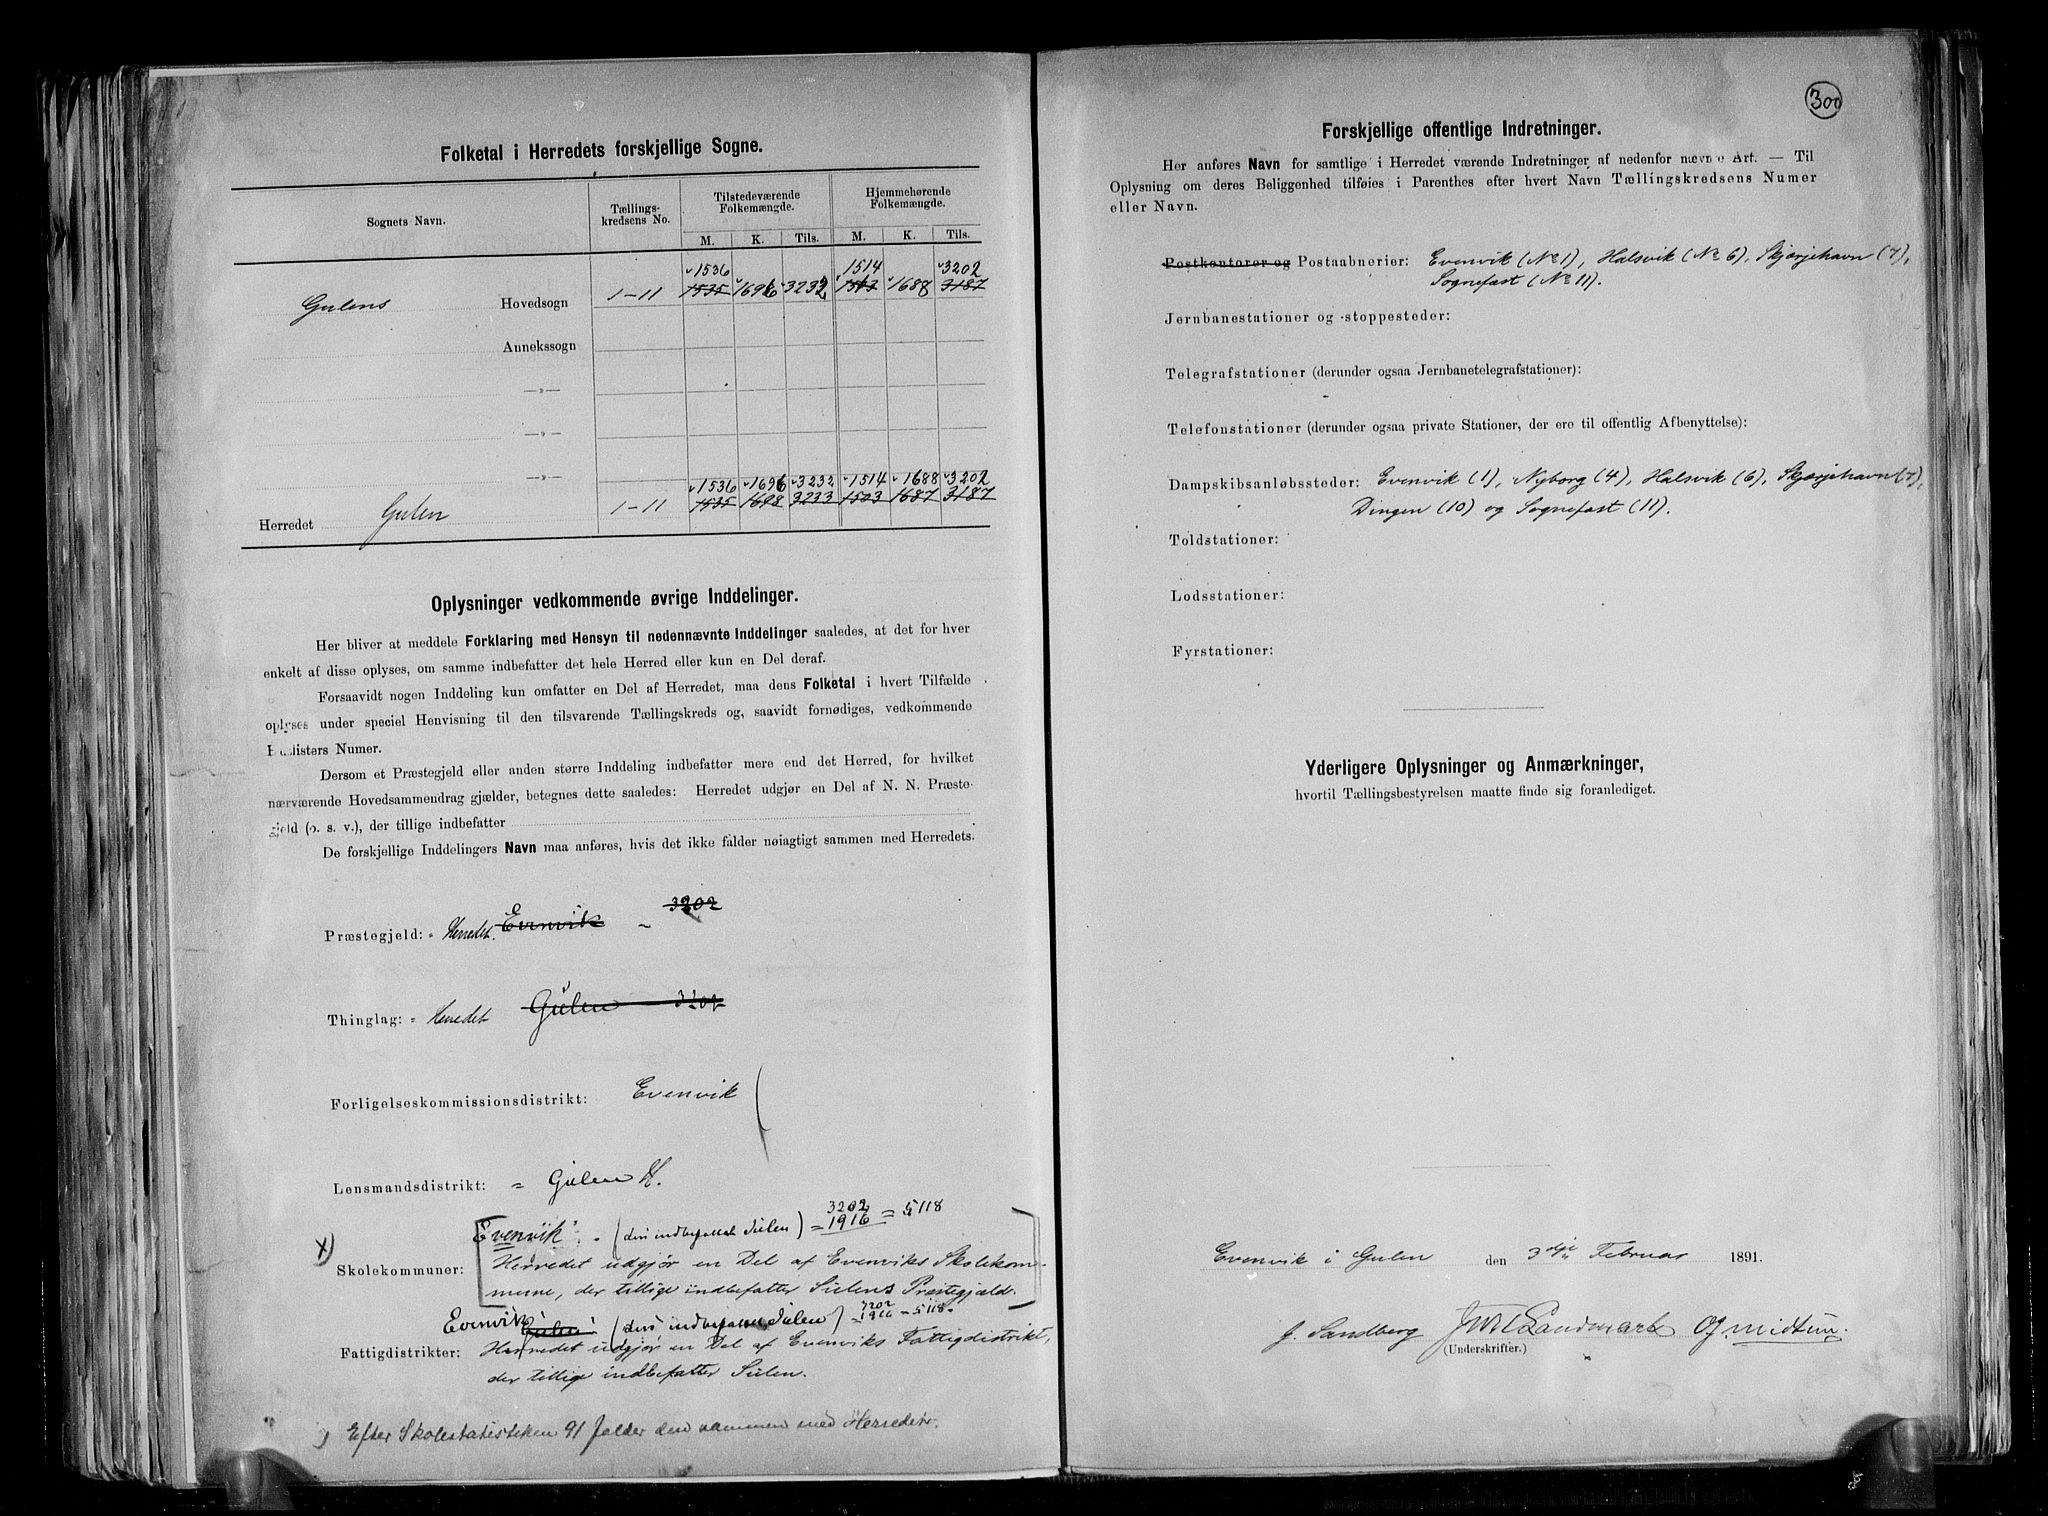 Folketal i Herredets forskjellige Sogne.
Sognets Navn.
Tællings-
kredsens No.
Tilstedeværende
Folkemængde.
Hjemmehørende
Folkemængde.
M. K. Tils. M. K. Tils.
1536 1514 3202
Gulens Hovedsogn 1-11 1535 1696 3232 1513 1688 3187
Annekssogn
-»-
-»-
-»-
1536 1696 3232 1514 1688 3202
Herredet Gulen 1-11 1535 1698 3233 1503 1687 3187
Oplysninger vedkommende øvrige Inddelinger.
Her bliver at meddele Forklaring med Hensyn til nedennævnte Inddelinger saaledes, at det for hver
enkelt af disse oplyses, om samme indbefatter det hele Herred eller kun en Del deraf.
Forsaavidt nogen Inddeling kun omfatter en Del af Herredet, maa dens Folketal i hvert Tilfælde
oplyses under speciel Henvisning til den tilsvarende Tællingskreds og, saavidt fornødiges, vedkommende
Huslisters Numer.
Dersom et Præstegjeld eller anden større Inddeling indbefatter mere end det Herred, for hvilket
nærværende Hovedsammendrag gjælder, betegnes dette saaledes: Herredet udgjør en Del af N. N. Præste-
gjeld (o. s. v.), der tillige indbefatter
De forskjellige Inddelingers Navn maa anføres, hvis det ikke falder nøiagtigt sammen med Herredets.
Præstegjeld: = Herredet. Evenvik - 3202
Thinglag: = Herredet Gulen 3202
Forligelseskommissionsdistrikt: Evenvik
Lensmandsdistrikt: = Gulen H.
3202
Evenvik: (den indbefatter Sulen) = 1916 = 5118
x)
Herredet udgjør en Del af Evenviks Skolekom-
Skolekommuner:
mune, der tillige indbefatter Sulens Præstegjæld.
3202
Evenvik Gulen (den indbefatter Sulen) = 1916 = 5118
Fattigdistrikter: Herredet udgjør en Del af Evenviks Fattigdistrikt,
der tillige indbefatter Sulen.
Efter Skolestatistiken 91 falder den sammen med Herredet.
300
Forskjellige offentlige Indretninger.
Her anføres Navn for samtlige i Herredet værende Indretninger af nedenfor nævnte Art. — Til
Oplysning om deres Beliggenhed tilføies i Parenthes efter hvert Navn Tællingskredsens Numer
eller Navn.
Postkontorer og Postaabnerier: Evenvik (No 1), Halsvik (No 6), Skjærjehavn (7),
Sognefæst (No 11).
Jernbanestationer og -stoppesteder:
Telegrafstationer (derunder ogsaa Jernbanetelegrafstationer):
Telefonstationer (derunder ogsaa private Stationer, der ere til offentlig Afbenyttelse):
Dampskibsanløbssteder: Evenvik (1), Nyborg (4), Halsvik (6), Skjærjehavn (7),
Dingen (10) og Sognefæst (11).
Toldstationer:
Lodsstationer:
Fyrstationer:
Yderligere Oplysninger og Anmærkninger,
hvortil Tællingsbestyrelsen maatte finde sig foranlediget.
Evenvik i Gulen den 3dje Februar 1891.
J. Sandberg Landmark Midtun.
(Underskrifter.)